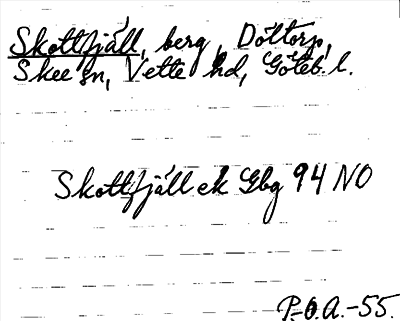 Skottfjäll, berg, Döltorp,
Skee sn, Vette hd, Göteb. l.
Skottfjäll ek Gbg 94 NO
P.O.A.-55.